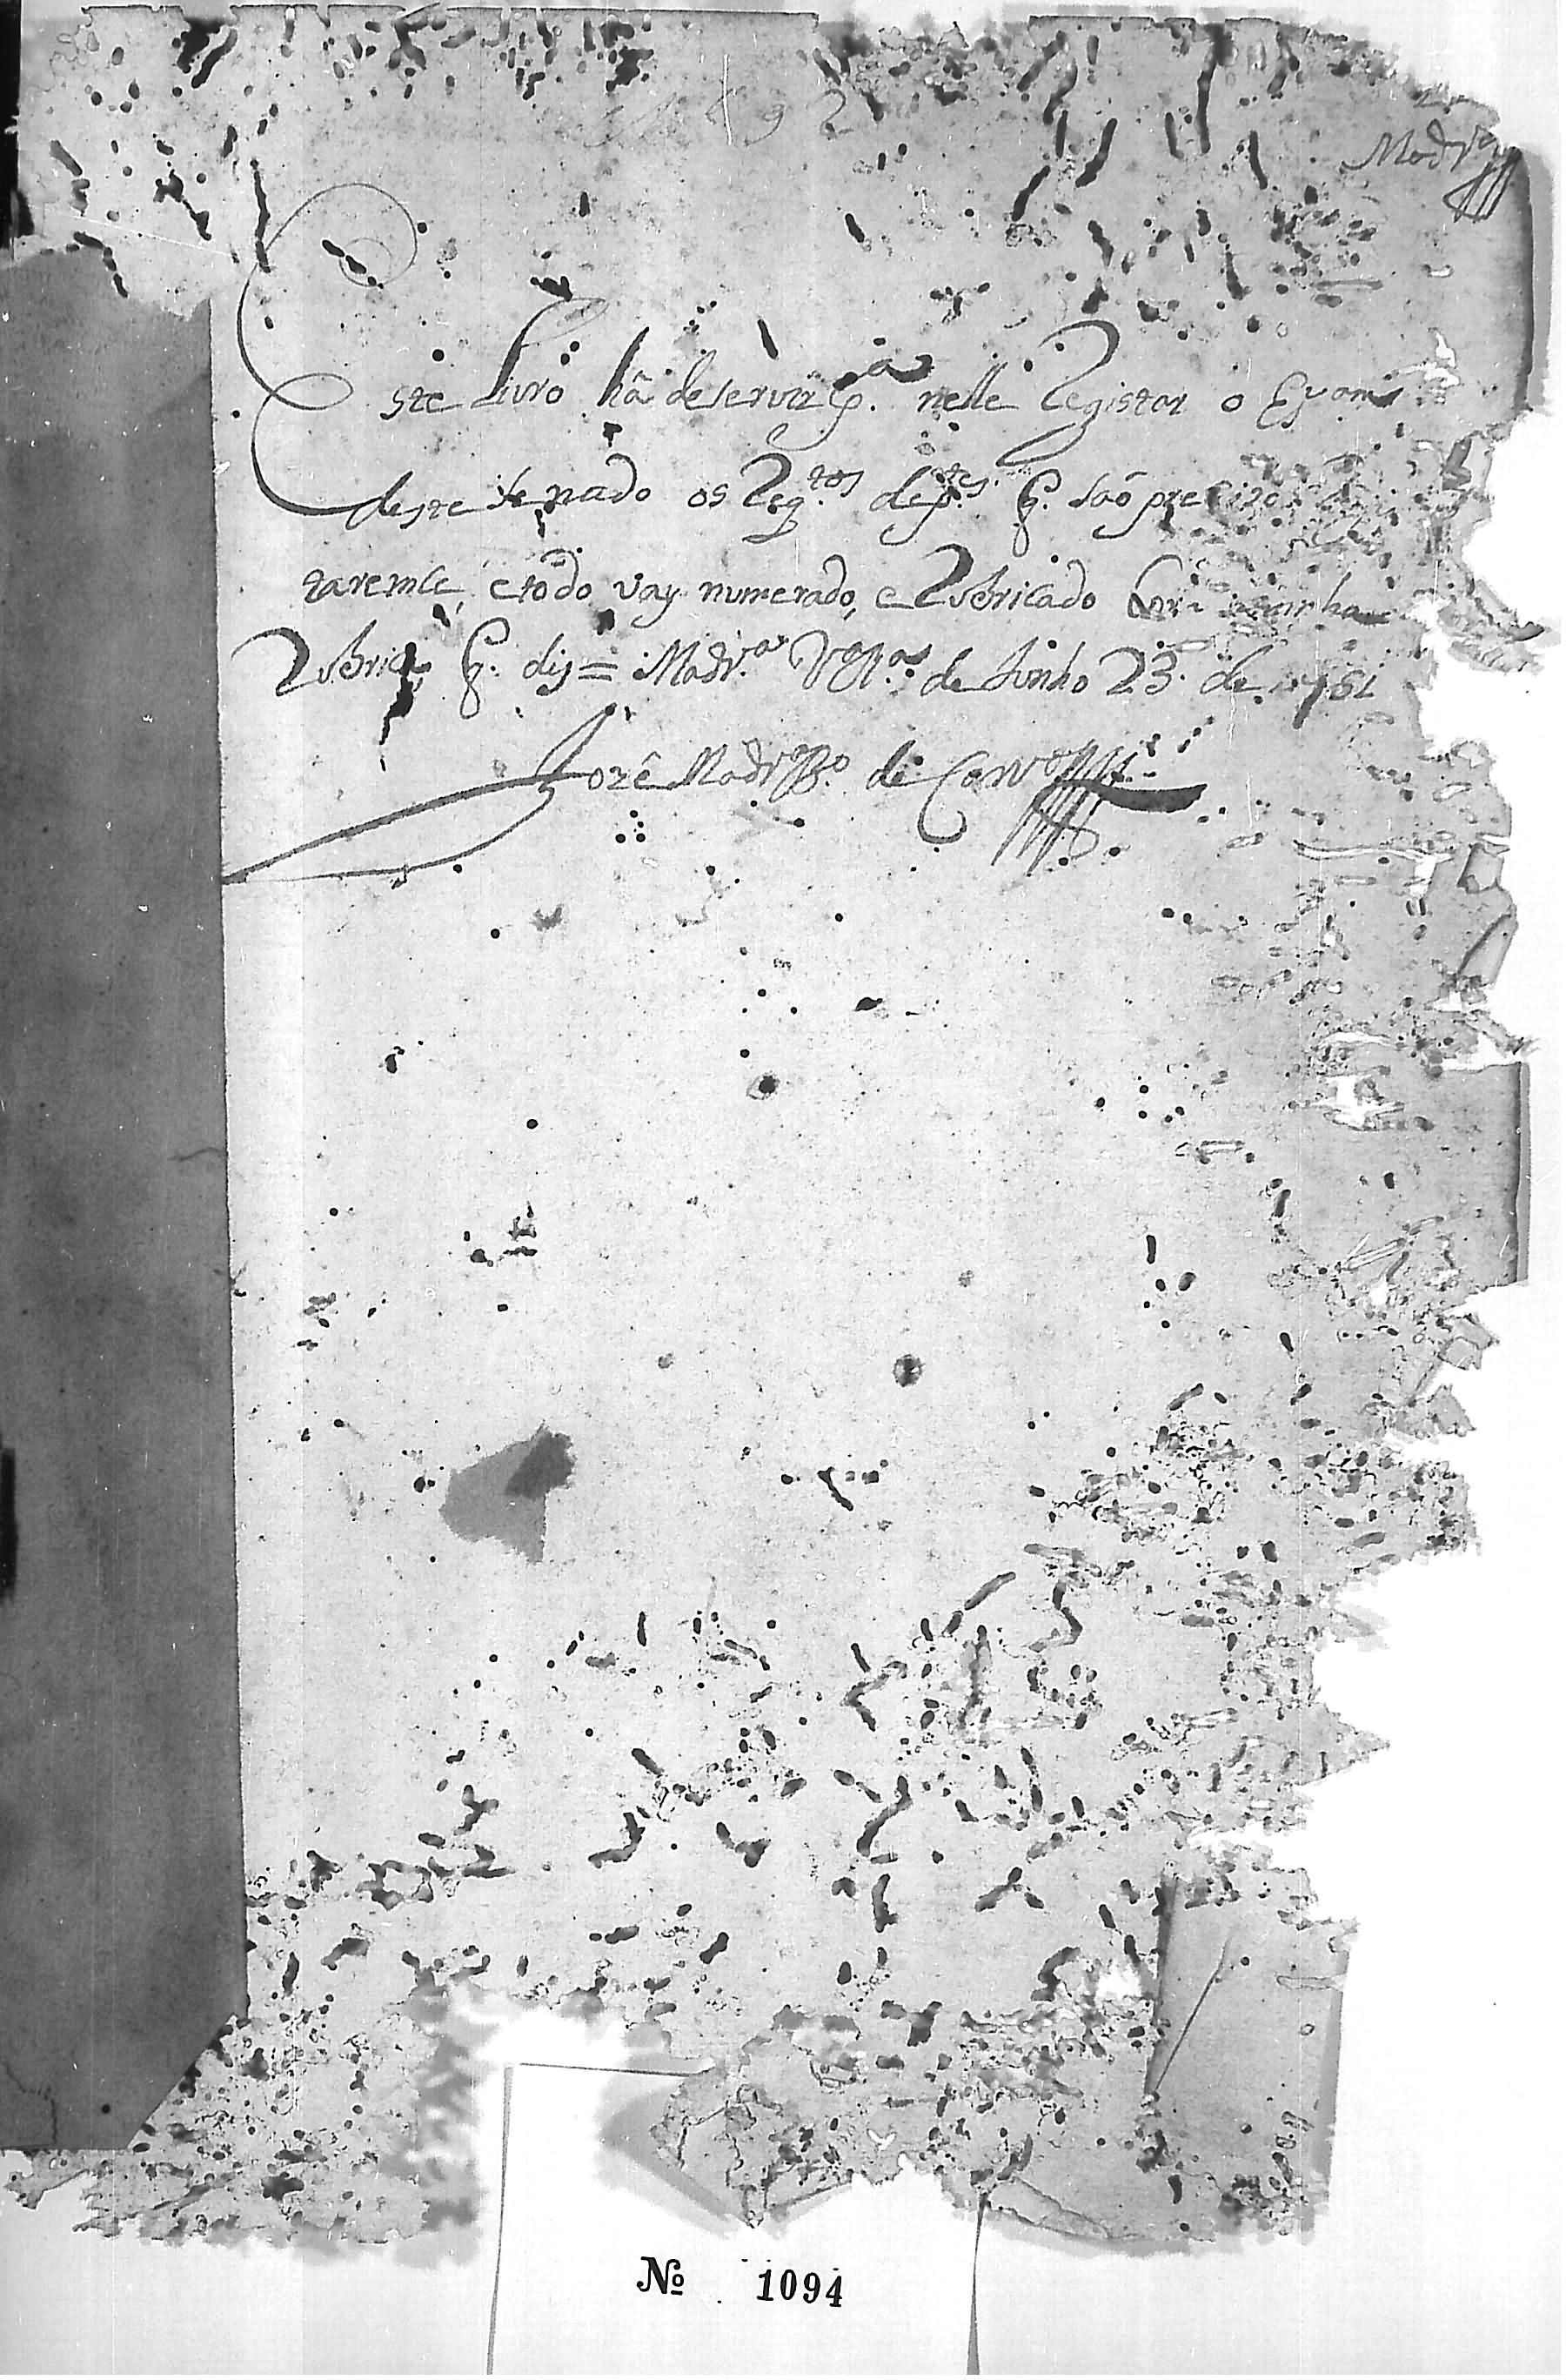 Madr.ª
Este Livro hâ de servir p.ª nelle Registar o Escrm
deste senado os Reg.tos de p.tes q. são precizos
taremse, e todo vay numerado, e Rubricado Com minha
Rubrica, q. dis = Madr.ª V.ª R.ª de Junho 23. de 1761
Jozê Madr.ª de Carv.º
Nº 1094